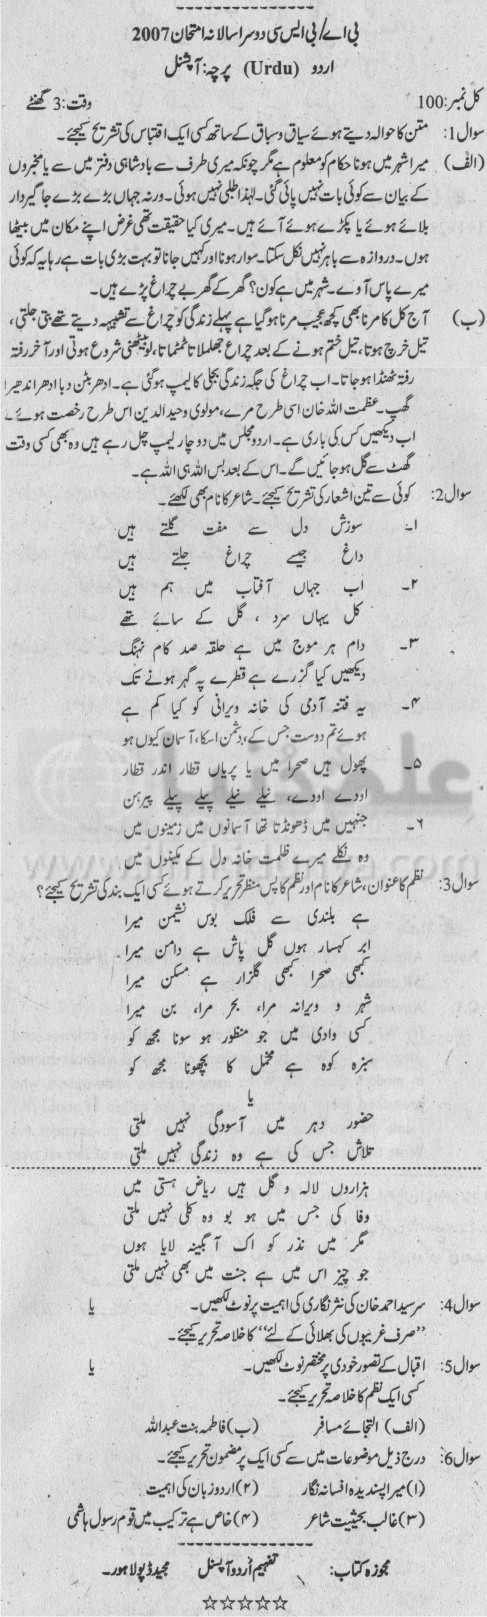 بی اے/بی ایس سی دوسرا سالانہ امتحان 2007
اردو (Urdu) پرچہ: آپشنل
کل نمبر: 100 وقت: 3 گھنٹے
سوال1: متن کا حوالہ دیتے ہوئے سیاق و سباق کے ساتھ کسی ایک اقتباس کی تشریح کیجئے۔
(الف) میرا شہر میں ہونا حکام کو معلوم ہے مگر چونکہ میری طرف سے بادشاہی دفتر میں سے یا مخبروں
کے بیان سے کوئی بات نہیں پائی گئی۔ لہٰذا طلبی نہیں ہوئی۔ ورنہ جہاں بڑے بڑے جاگیردار
بلائے ہوئے یا پکڑے ہوئے آئے ہیں۔ میری کیا حقیقت تھی غرض اپنے مکان میں بیٹھا
ہوں۔ دروازہ سے باہر نہیں نکل سکتا۔ سوار ہونا اور کہیں جانا تو بہت بڑی بات ہے رہا یہ کہ کوئی
میرے پاس آوے۔ شہر میں ہے کون؟ گھر کے گھر بے چراغ پڑے ہیں۔
(ب) آج کل کا مرنا بھی کچھ عجیب مرنا ہو گیا ہے پہلے زندگی کو چراغ سے تشبیہہ دیتے تھے بتی جلتی،
تیل خرچ ہوتا، تیل ختم ہونے کے بعد چراغ جھلملاتا ٹمٹماتا، لو بیٹھنی شروع ہوتی اور آخر رفتہ
رفتہ ٹھنڈا ہو جاتا۔ اب چراغ کی جگہ زندگی بجلی کا لیمپ ہو گئی ہے۔ ادھر بٹن دبا ادھر اندھیرا
گھپ۔ عظمت اللہ خان اسی طرح مرے، مولوی وحید الدین اس طرح رخصت ہوئے۔
اب دیکھیں کس کی باری ہے۔ اردو مجلس میں دو چار لیمپ چل رہے ہیں وہ بھی کسی وقت
گھٹ سے گل ہو جائیں گے۔ اس کے بعد بس اللہ ہی اللہ ہے۔
سوال2: کوئی سے تین اشعار کی تشریح کیجئے۔ شاعر کا نام بھی لکھئے۔
۱۔ سوزش دل سے مفت گلتے ہیں
داغ جیسے چراغ جلتے ہیں
۲۔ اب جہاں آفتاب میں ہم ہیں
کل یہاں سرو، گل کے سائے تھے
۳۔ دام ہر موج میں ہے حلقہ صد کام نہنگ
دیکھیں کیا گزرے ہے قطرے پہ گہر ہونے تک
۴۔ یہ فتنہ آدمی کی خانہ ویرانی کو کیا کم ہے
ہوئے تم دوست جس کے، دشمن اسکا، آسمان کیوں ہو
۵۔ پھول ہیں صحرا میں یا پریاں قطار اندر قطار
اودے اودے، نیلے نیلے پیلے پیلے پیرہن
۶۔ جنہیں میں ڈھونڈتا تھا آسمانوں میں زمینوں میں
وہ نکلے میرے ظلمت خانہ دل کے مکینوں میں
سوال3: نظم کا عنوان، شاعر کا نام اور نظم کا پس منظر تحریر کرتے ہوئے کسی ایک بند کی تشریح کیجئے؟
ہے بلندی سے فلک بوس نشیمن میرا
ابر کہسار ہوں گل پاش ہے دامن میرا
کبھی صحرا کبھی گلزار ہے مسکن میرا
شہر و ویرانہ مرا، بحر مرا، بن میرا
کسی وادی میں جو منظور ہو سونا مجھ کو
سبزہ کوہ ہے مخمل کا بچھونا مجھ کو
یا
حضور دہر میں آسودگی نہیں ملتی
تلاش جس کی ہے وہ زندگی نہیں ملتی
ہزاروں لالہ و گل ہیں ریاض ہستی میں
وفا کی جس میں ہو بو وہ کلی نہیں ملتی
مگر میں نذر کو اک آبگینہ لایا ہوں
جو چیز اس میں ہے جنت میں بھی نہیں ملتی
سوال4: سرسید احمد خان کی نثر نگاری کی اہمیت پر نوٹ لکھیں۔ یا
”صرف غریبوں کی بھلائی کے لئے“ کا خلاصہ تحریر کیجئے۔
سوال5: اقبال کے تصور خودی پر مختصر نوٹ لکھیں۔ یا
کسی ایک نظم کا خلاصہ تحریر کیجئے۔
(الف) التجائے مسافر (ب) فاطمہ بنت عبداللہ
سوال6: درج ذیل موضوعات میں سے کسی ایک پر مضمون تحریر کیجئے۔
(۱) میرا پسندیدہ افسانہ نگار (۲) اردو زبان کی اہمیت
(۳) غالب بحیثیت شاعر (۴) خاص ہے ترکیب میں قوم رسول ہاشمی
مجوزہ کتاب: تفہیم اُردو آپشنل مجید بکڈپو لاہور۔
☆☆☆☆☆